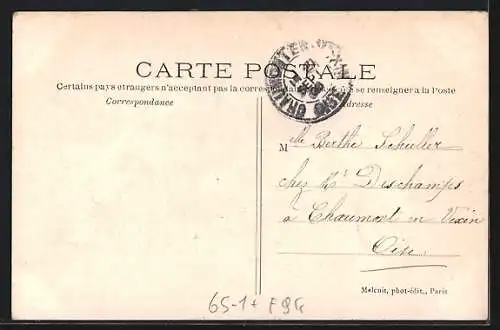 CARTE POSTALE
Certains pays etrangers n'acceptant pas la correspondance se renseigner a la Poste
Correspondance
Adresse
Mlle Berthe Schuller
chez Mr Deschamps
à Chaumont en Vexin
Oise
Melcuit, phot-édit., Paris